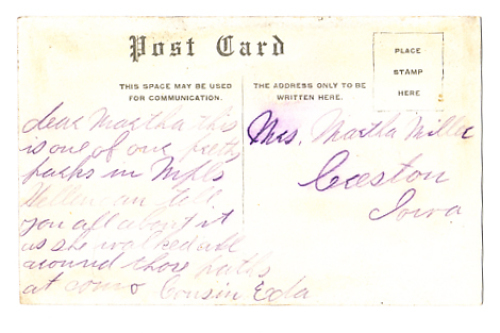 Post Card
PLACE
STAMP
HERE
THIS SPACE MAY BE USED
FOR COMMUNICATION.
THE ADDRESS ONLY TO BE
WRITTEN HERE.
dear Martha this
is one of our pretty
parks in Mpls
Hellen can tell
you all about it
as she walked all
around those paths
at como Cousin Eda
Mrs. Martha Miller
Easton
Iowa